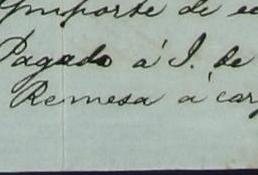 Importe de
Pagado á J. de
Remesa á car